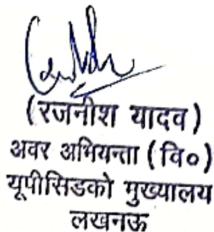 (रजनीश यादव)
अवर अभियन्ता (वि०)
यूपीसिडको मुख्यालय
लखनऊ